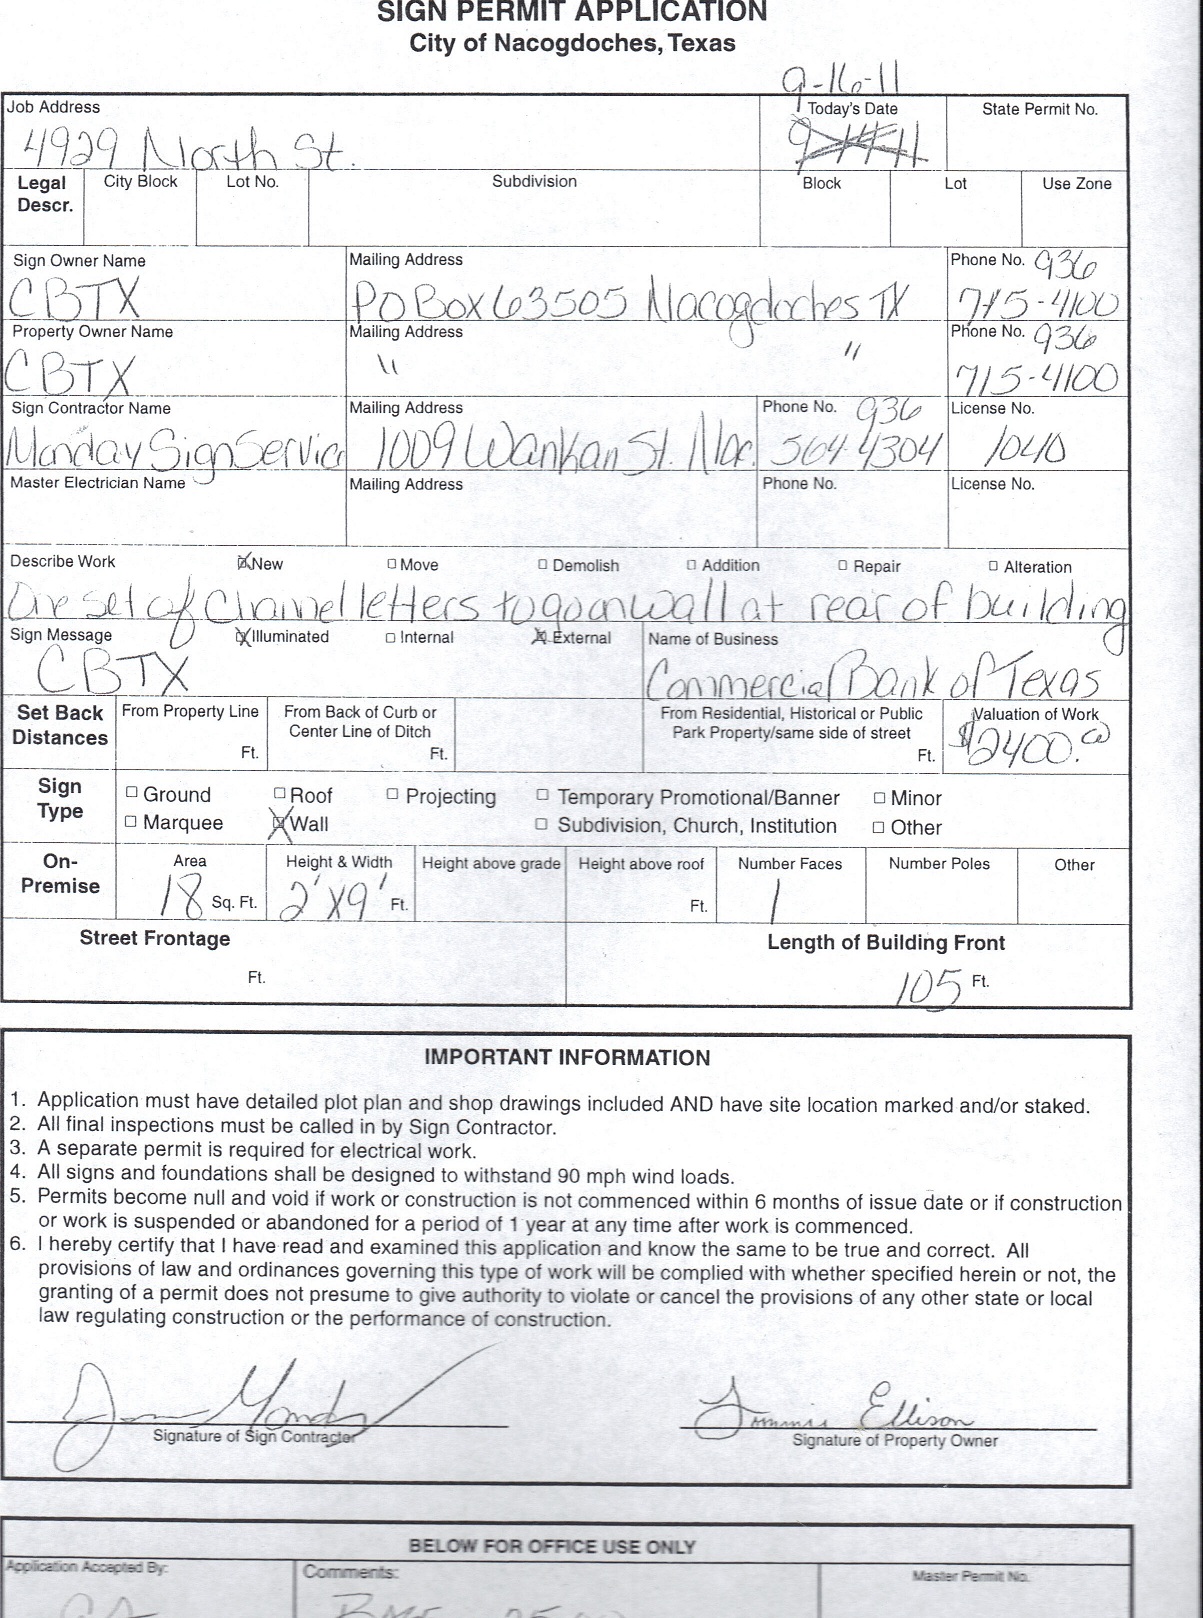 SIGN PERMIT APPLICATION
City of Nacogdoches, Texas
9-16-11
Job Address Today's Date State Permit No.
4929 North St.
Legal Descr. City Block Lot No. Subdivision Block Lot Use Zone
Sign Owner Name Mailing Address Phone No. 936
CBTX PO Box 63505 Nacogdoches TX 715-4100
Property Owner Name Mailing Address Phone No. 936
CBTX " " 715-4100
Sign Contractor Name Mailing Address Phone No. 936 License No.
Monday Sign Service 1009 Wankan St. Nac. 564-4304 1040
Master Electrician Name Mailing Address Phone No. License No.
Describe Work New Move Demolish Addition Repair Alteration
One set of Channel letters to go on wall at rear of building
Sign Message Illuminated Internal External Name of Business
CBTX Commercial Bank of Texas
Set Back Distances From Property Line Ft. From Back of Curb or Center Line of Ditch Ft. From Residential, Historical or Public Park Property/same side of street Ft. Valuation of Work $2400.00
Sign Type Ground Roof Projecting Temporary Promotional/Banner Minor
Marquee Wall Subdivision, Church, Institution Other
On-Premise Area Height & Width Height above grade Height above roof Number Faces Number Poles Other
18 Sq. Ft. 2'x9' Ft. Ft. 1
Street Frontage Length of Building Front
Ft. 105 Ft.
IMPORTANT INFORMATION
1. Application must have detailed plot plan and shop drawings included AND have site location marked and/or staked.
2. All final inspections must be called in by Sign Contractor.
3. A separate permit is required for electrical work.
4. All signs and foundations shall be designed to withstand 90 mph wind loads.
5. Permits become null and void if work or construction is not commenced within 6 months of issue date or if construction
or work is suspended or abandoned for a period of 1 year at any time after work is commenced.
6. I hereby certify that I have read and examined this application and know the same to be true and correct. All
provisions of law and ordinances governing this type of work will be complied with whether specified herein or not, the
granting of a permit does not presume to give authority to violate or cancel the provisions of any other state or local
law regulating construction or the performance of construction.
Monday Tommie Ellison
Signature of Sign Contractor Signature of Property Owner
BELOW FOR OFFICE USE ONLY
Application Accepted By: Comments: Master Permit No.